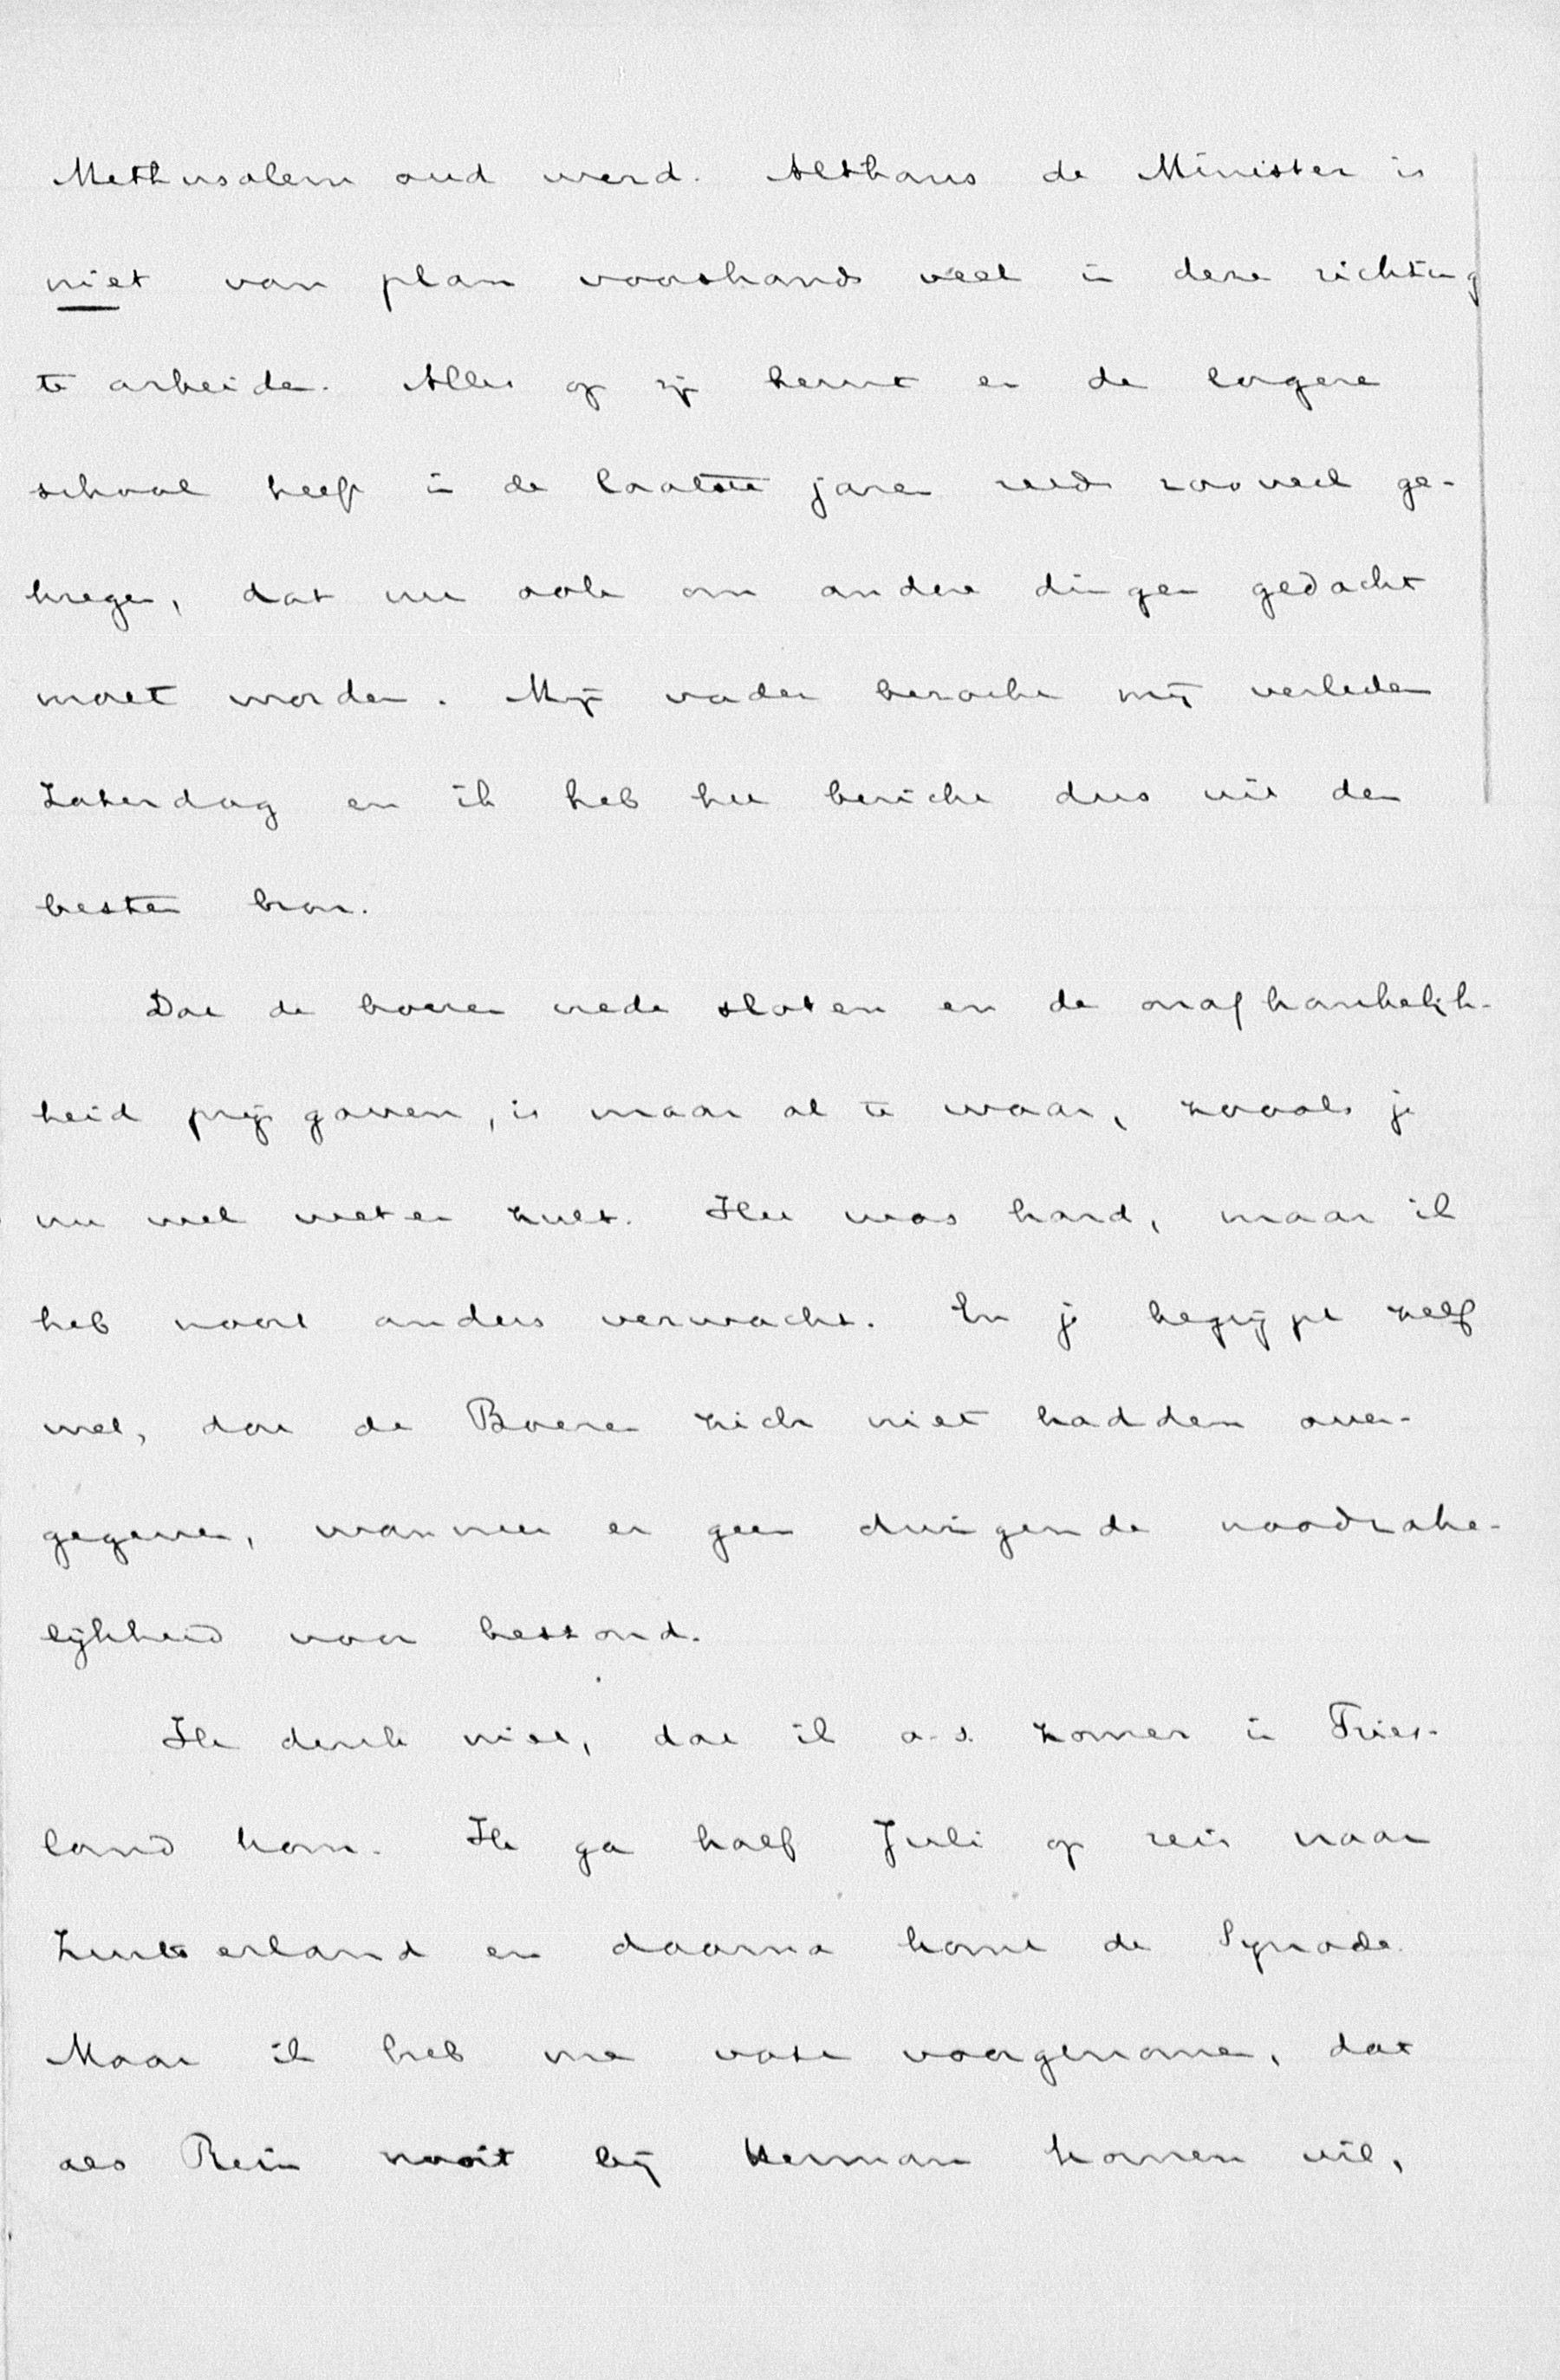 Methusalem oud werd. Althans de Minister is
niet van plan voorshands veel in deze richting
te arbeiden. Alles op zijn beurt en de lagere
school heeft in de laatste jaren reeds zooveel ge-
kregen, dat nu ook om andere dingen gedacht
moet worden. Mijn vader bezocht mij verleden
Zaterdag en ik heb het bericht dus uit den
besten bron.
Dat de boeren vrede sloten en de onafhankelijk-
heid prijs gaven, is maar al te waar, zooals je
nu wel weten zult. Het was hard, maar ik
heb nooit anders verwacht. En je begrijpt zelf
wel, dat de Boeren zich niet hadden over-
gegeven, wanneer er geen dwingende noodzake-
lijkheid voor bestond.
Ik denk niet, dat ik a.s. zomer in Fries-
land kom. Ik ga half Juli op reis naar
Zwitserland en daarna komt de Synode.
Maar ik heb me vast voorgenomen, dat
als Rein nooit bij Herman komen wil,